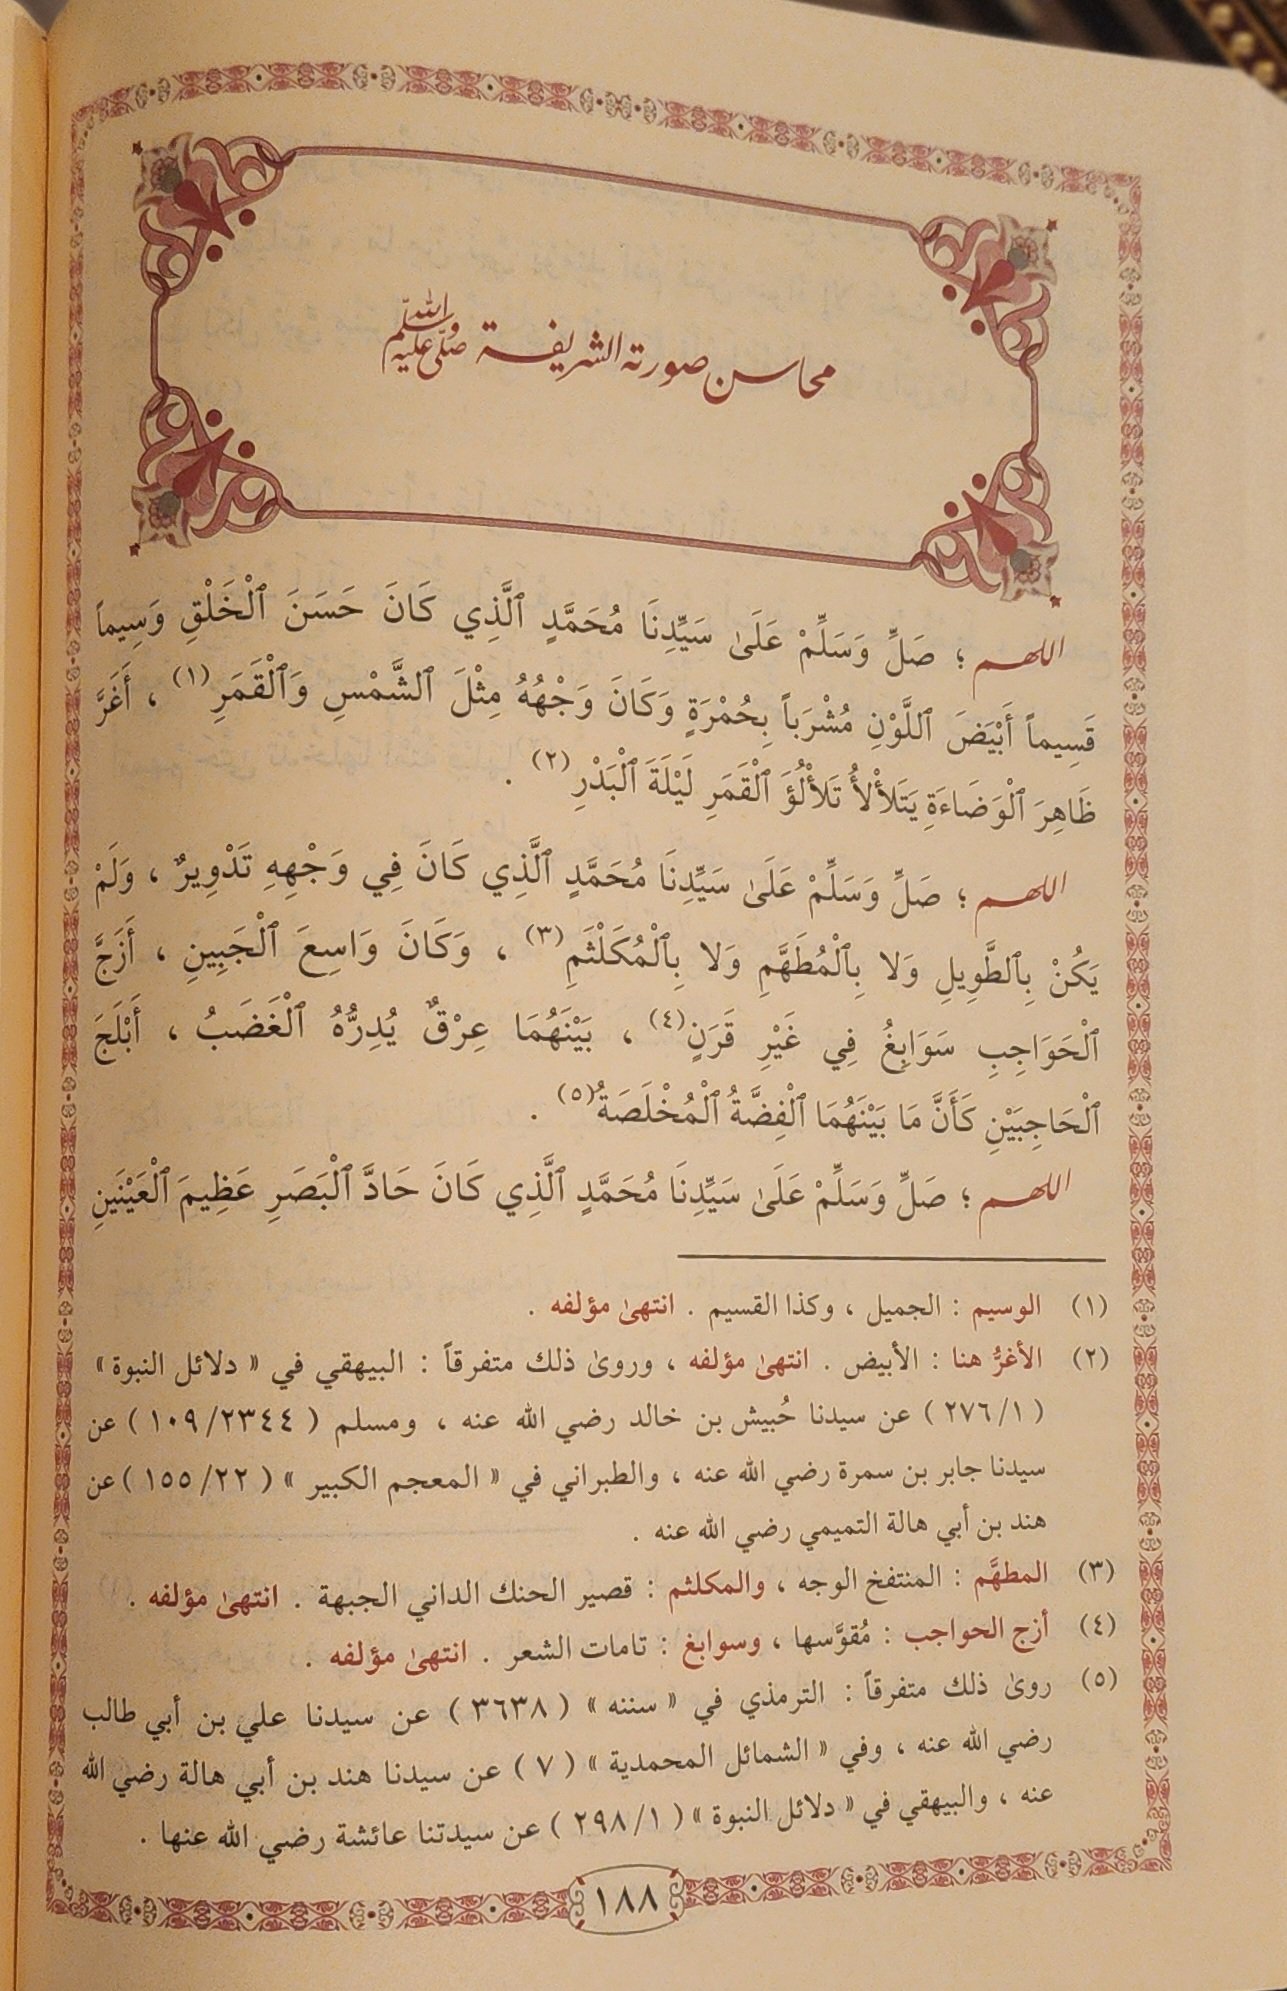 محاسن صورته الشريفة ﷺ
اللهم ؛ صَلِّ وَسَلِّمْ عَلَىٰ سَيِّدِنَا مُحَمَّدٍ ٱلَّذِي كَانَ حَسَنَ ٱلْخَلْقِ وَسِيماً
قَسِيماً أَبْيَضَ ٱللَّوْنِ مُشْرَباً بِحُمْرَةٍ وَكَانَ وَجْهُهُ مِثْلَ ٱلشَّمْسِ وَٱلْقَمَرِ(١) ، أَغَرَّ
ظَاهِرَ ٱلْوَضَاءَةِ يَتَلأْلأُ تَلأْلُؤَ ٱلْقَمَرِ لَيْلَةَ ٱلْبَدْرِ(٢) .
اللهم ؛ صَلِّ وَسَلِّمْ عَلَىٰ سَيِّدِنَا مُحَمَّدٍ ٱلَّذِي كَانَ فِي وَجْهِهِ تَدْوِيرٌ ، وَلَمْ
يَكُنْ بِٱلطَّوِيلِ وَلا بِٱلْمُطَهَّمِ وَلا بِٱلْمُكَلْثَمِ(٣) ، وَكَانَ وَاسِعَ ٱلْجَبِينِ ، أَزَجَّ
ٱلْحَوَاجِبِ سَوَابِغُ فِي غَيْرِ قَرَنٍ(٤) ، بَيْنَهُمَا عِرْقٌ يُدِرُّهُ ٱلْغَضَبُ ، أَبْلَجَ
ٱلْحَاجِبَيْنِ كَأَنَّ مَا بَيْنَهُمَا ٱلْفِضَّةُ ٱلْمُخْلَصَةُ(٥) .
اللهم ؛ صَلِّ وَسَلِّمْ عَلَىٰ سَيِّدِنَا مُحَمَّدٍ ٱلَّذِي كَانَ حَادَّ ٱلْبَصَرِ عَظِيمَ ٱلْعَيْنَينِ
(١) الوسيم : الجميل ، وكذا القسيم . انتهىٰ مؤلفه .
(٢) الأغرُّ هنا : الأبيض . انتهىٰ مؤلفه ، وروىٰ ذلك متفرقاً : البيهقي في « دلائل النبوة »
( ٢٧٦/١ ) عن سيدنا حُبيش بن خالد رضي الله عنه ، ومسلم ( ١٠٩/٢٣٤٤ ) عن
سيدنا جابر بن سمرة رضي الله عنه ، والطبراني في « المعجم الكبير » ( ١٥٥/٢٢ ) عن
هند بن أبي هالة التميمي رضي الله عنه .
(٣) المطهَّم : المنتفخ الوجه ، والمكلثم : قصير الحنك الداني الجبهة . انتهىٰ مؤلفه .
(٤) أزج الحواجب : مُقوَّسها ، وسوابغ : تامات الشعر . انتهىٰ مؤلفه .
(٥) روىٰ ذلك متفرقاً : الترمذي في « سننه » ( ٣٦٣٨ ) عن سيدنا علي بن أبي طالب
رضي الله عنه ، وفي « الشمائل المحمدية » ( ٧ ) عن سيدنا هند بن أبي هالة رضي الله
عنه ، والبيهقي في « دلائل النبوة » ( ٢٩٨/١ ) عن سيدتنا عائشة رضي الله عنها .
١٨٨